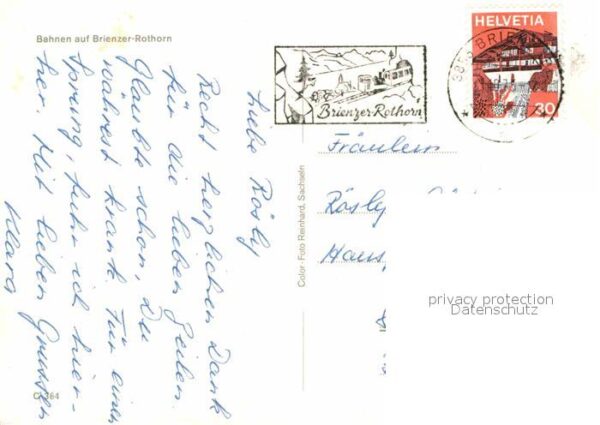 Bahnen auf Brienzer-Rothorn
HELVETIA
30
BRIENZ
Brienzer-Rothorn
Liebe Rösly
Recht herzlichen Dank
für die lieben Zeilen.
Glaubte schon, Du
währest krank. Für einen
Sprung, fuhr ich hier-
her. Mit lieben Grüssen
Klara
C 364
Color-Foto Reinhard, Sachseln
Fräulein
Rösly
Haus,
privacy protection
Datenschutz